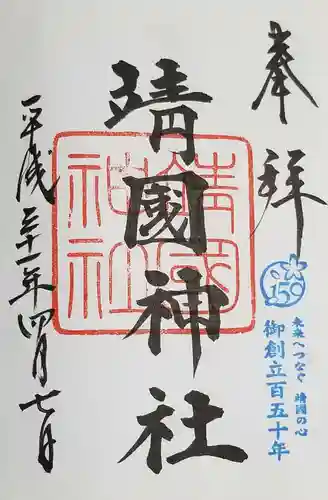 奉拝
靖國神社
靖國
神社
平成三十一年四月七日
150
未来へつなぐ 靖國の心
御創立百五十年